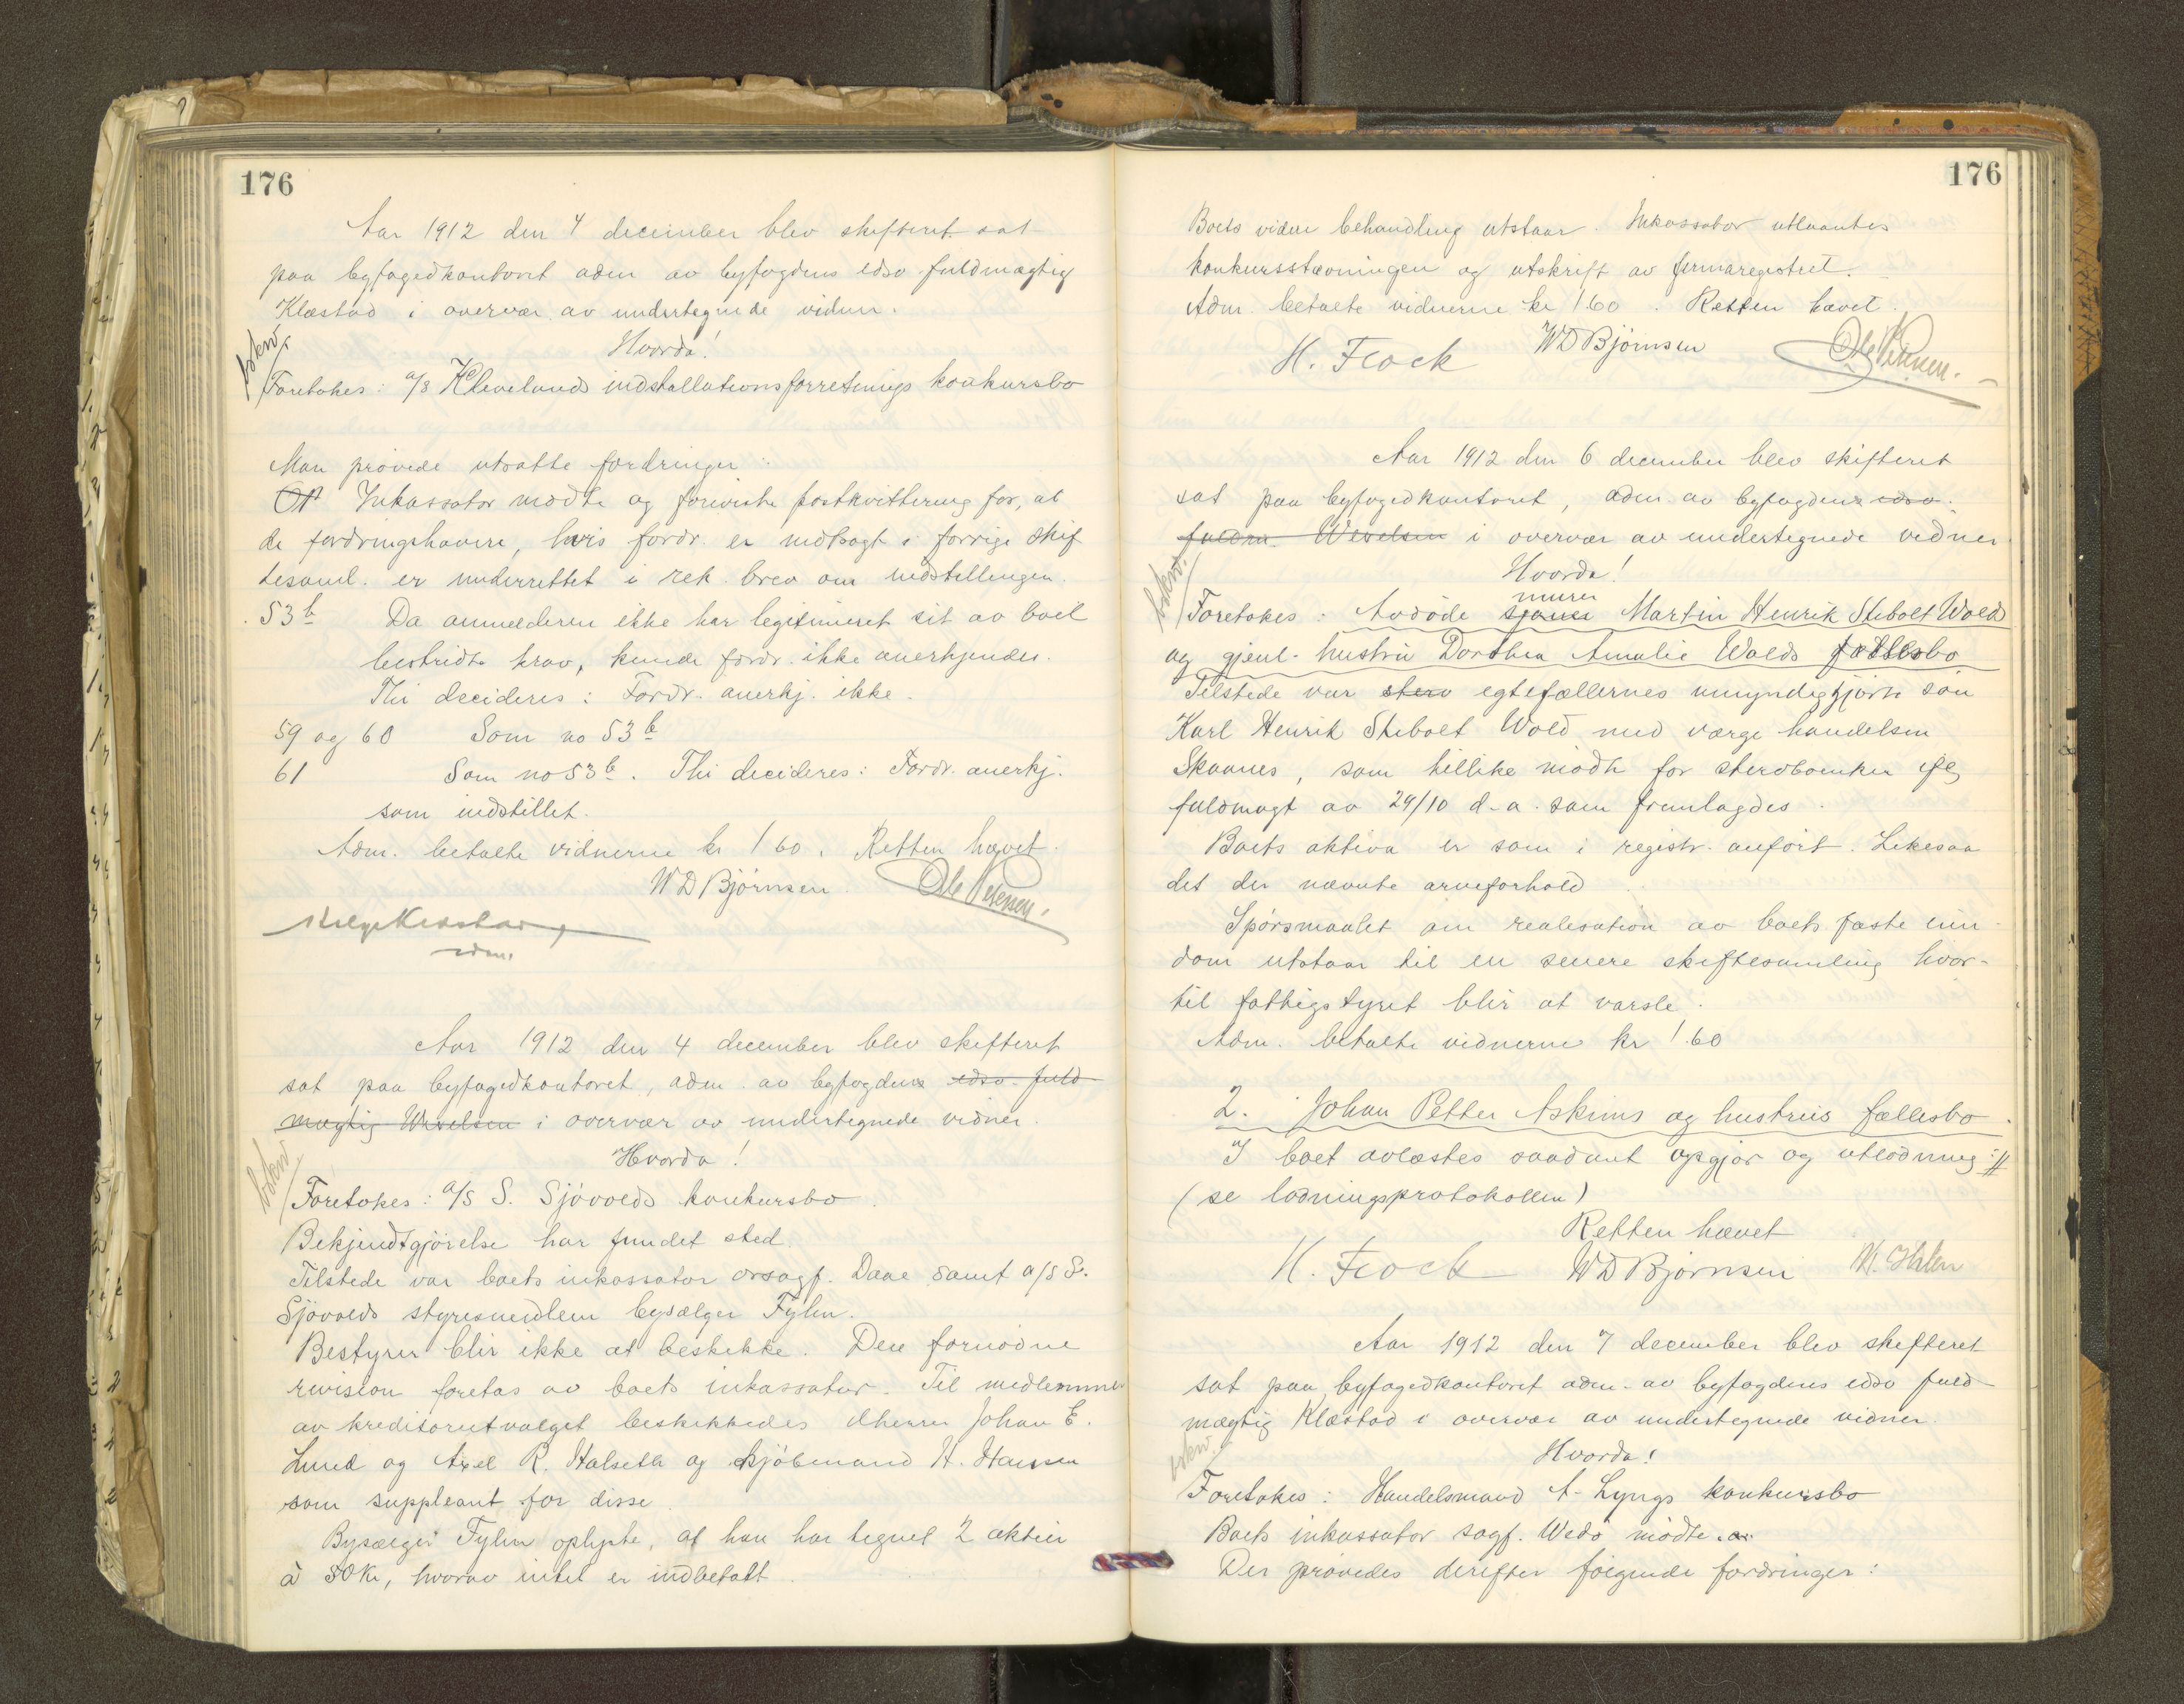 176
Aar 1912 den 4 december blev skifteret sat
paa byfogedkontoret adm av byfogdens edsv. fuldmægtig
Klæstad i overvær av undertegnede vidner.
Hvorda!
bokn.
Foretokes: a/s Klevelands indstallationsforretnings konkursbo
Man prøvede utsatte fordringer:
Inkassator mødte og foreviste postkvittering for, at
de fordringshavere, hvis fordr. er motsagt i forrige skif
tesaml. er underrettet i rek. brev om indstillingen.
53b Da anmelderen ikke har legitimeret sit av boet
bestridte krav, kunde fordr. ikke anerkjendes.
Thi decideres: Fordr. anerkj. ikke.
59 og 60 Som no 53b
61 Som no 53b. Thi decideres: Fordr. anerkj.
som indstillet.
Adm. betalte vidnerne kr 1.60. Retten hævet.
WDBjörnsen Ole Petersen.
Helge Klæstad
edsv.
Aar 1912 den 4 december blev skifteret
sat paa byfogedkontoret, adm. av byfogdens edsv. fuld
mægtig Wevelsen i overvær av undertegnede vidner.
Hvorda!
bokn.
Foretokes: a/s S. Sjövolds konkursbo.
Bekjendtgjörelse har fundet sted.
Tilstede var boets inkassator orsagf. Daae samt a/s S.
Sjövolds styresmedlem bysælger Fylm.
Bestyrer blir ikke at beskikke. Den fornödne
revision foretas av boets inkassator. Til medlemmer
av kreditorutvalget beskikkedes dherrer Johan E.
Lund og Axel R. Halseth og kjöbmand H. Hansen
som suppleant for disse.
Bysælger Fylm oplyste, at han har tegnet 2 aktier
à 50 kr, hvorav intet er indbetalt.
176
Boets videre behandling utstaar. Inkassator utlaantes
konkursstævningen og utskrift av firmaregistret.
Adm. betalte vidnerne kr 1.60. Retten hævet.
H. Flock WDBjörnsen Ole Petersen.
Aar 1912 den 6 december blev skifteret
sat paa byfogedkontoret, adm. av byfogdens edsv.
fuldm. Wevelsen i overvær av undertegnede vidner
Hvorda!
bokn.
murer
Foretokes: Avdöde sjaues Martin Henrik Stibolt Wold
og gjenl. hustru Dorthea Amalie Wolds fællesbo
Tilstede var sterv egtefællernes umyndiggjorte sön
Karl Henrik Stibolt Wold med værge handelsm
Skaanes, som tillike mödte for stervboenken iflg
fuldmagt av 29/10 d.a. som fremlagdes.
Boets aktiva er som i registr. anfört. Likesaa
det der nævnte arveforhold.
Spörsmaalet om realisation av boets faste eien
dom utstaar til en senere skiftesamling hvor-
til fattigstyret blir at varsle.
Adm. betalte vidnerne kr 1.60
2. Johan Petter Askims og hustrus fællesbo.
I boet avlæstes saadant opgjör og utlodning:
(se lodningsprotokollen)
Retten hævet
H. Flock WDBjörnsen
Aar 1912 den 7 december blev skifteret
sat paa byfogedkontoret adm. av byfogdens edsv fuld
mægtig Klæstad i overvær av undertegnede vidner.
Hvorda!
bokn.
Foretokes: Handelsmand A. Lyngs konkursbo
Boets inkassator sagf. Wedö mödte.
Der prövedes derefter fölgende fordringer: